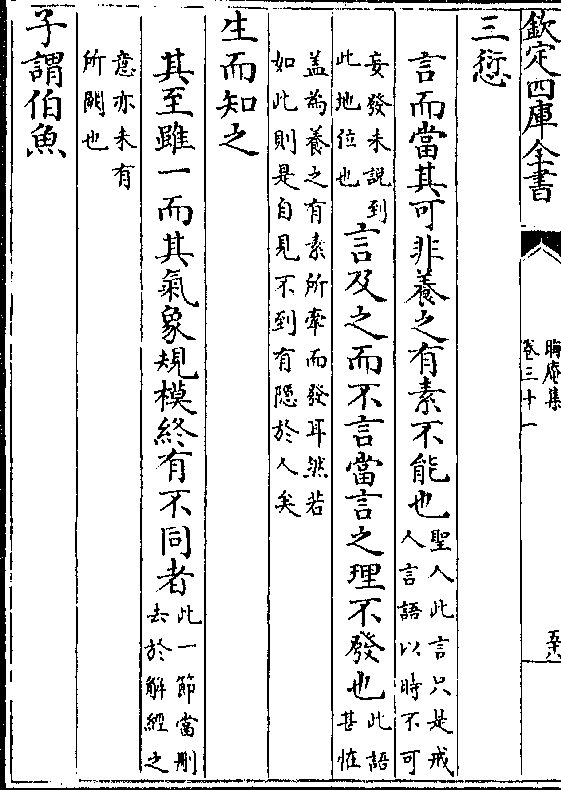 欽定四庫全書
晦庵集
卷三十一
五六
三愆
言而當其可非養之有素不能也聖人此言只是戒
人言語以時不可
妄發未說到
此地位也言及之而不言當言之理不發也此語
甚怪
蓋為養之有素所牽而發耳然若
如此則是自見不到有隱於人矣
生而知之
其至雖一而其氣象規模終有不同者此一節當刪
去於解經之
意亦未有
所闕也
子謂伯魚